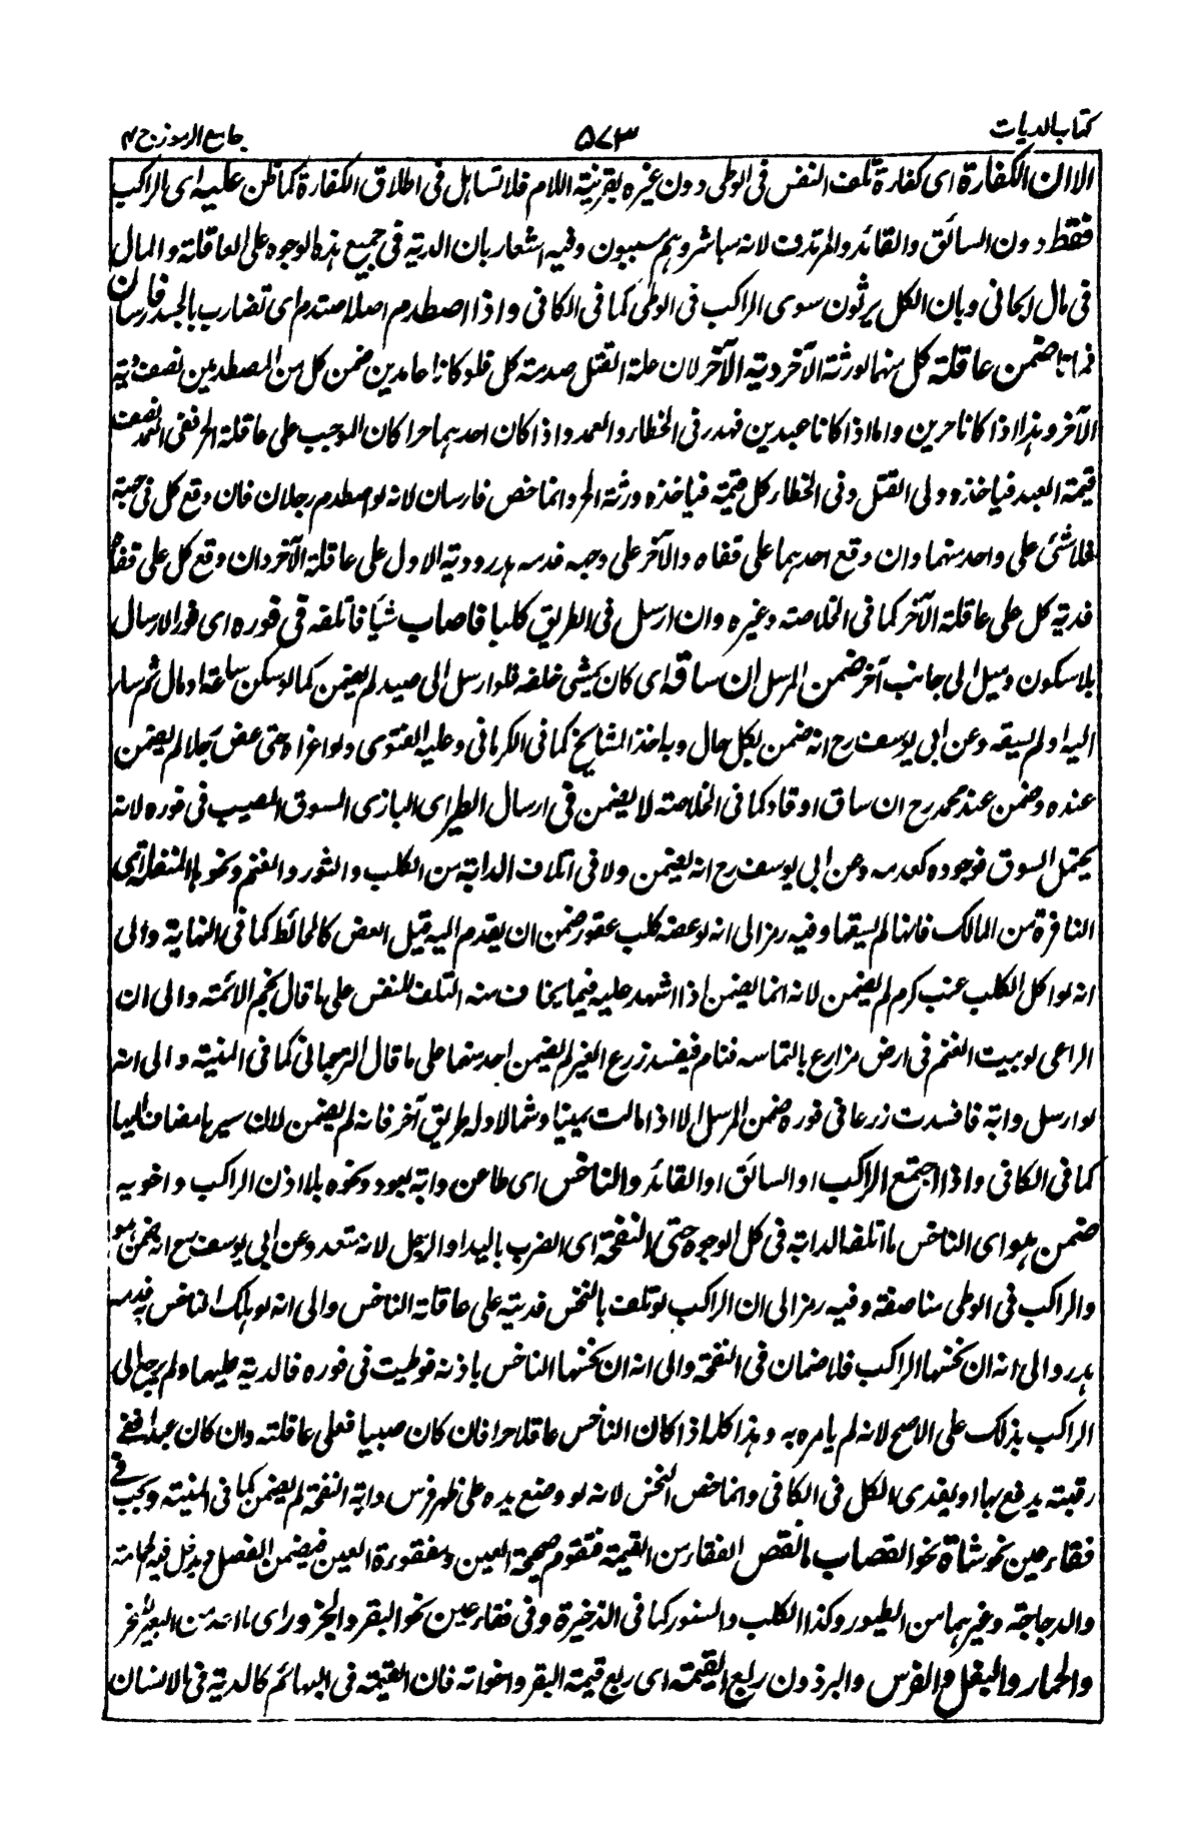 كتاب الديات
٥٧٣
جامع الرموز ج ٢
الا ان الكفارة اى كفارة تلف النفس فى الوطى دون غيره بقرينة اللام فلا تساهل فى اطلاق الكفارة كما ظن عليه اى الراكب
فقط دون السائق والقائد والمرتدف لانه مباشر وهم مسببون وفيه اشعار بان الدية فى جميع هذه الوجوه على العاقلة والمال
فى مال الجانى وبان الكل يرثون سوى الراكب فى الوطى كما فى الكافى واذا اصطدم اصلا صتدم اى تضارب بالجسد فارسان
فماتا ضمن عاقلة كل منهما لورثة الآخر دية الآخر لان علة القتل صدمة كل فلو كانا عامدين ضمن كل من المصطدمين نصف دية
الآخر وهذا اذا كانا حرين واما اذا كانا عبدين فهدر فى الخطا والعمد واذا كان احدهما حرا كان الوجب على عاقلة الحر ففى العمد نصف
قيمة العبد فياخذه ولى القتل وفى الخطا كل قيمته فياخذه ورثة الحر وانما خص فارسان لانه لو اصطدم رجلان فان وقع كل فى جبهته
فلا شئ على واحد منهما وان وقع احدهما على قفاه والآخر على وجهه فدمه هدر ودية الاول على عاقلة الآخر وان وقع كل على قفاه
فدية كل على عاقلة الآخر كما فى الخلاصة وغيره وان ارسل فى الطريق كلبا فاصاب شيأ فاتلفه فى فوره اى فور الارسال
بلا سكون وميل الى جانب آخر ضمن المرسل ان ساقه اى كان يمشى خلفه فلو ارسل الى صيد لم يضمن كما لو سكن ساعة او مال ثم سار
اليه او لم يسقه وعن ابى يوسف رح انه ضمن بكل حال وبه اخذ المشايخ كما فى الكرمانى وعليه الفتوى ولو اغراه حتى عض رجلا لم يضمن
عنده وضمن عند محمد رح ان ساق او قاد كما فى الخلاصة لا يضمن فى ارسال الطير اى البازى السوق المصيب فى فوره لانه
يحتمل السوق فوجوده كعدمه وعن ابى يوسف رح انه يضمن ولا فى اتلاف الدابة من الكلب والثور والغنم ونحوها المنفلتة اى
النافرة من المالك فانها لم يسقها وفيه رمز الى انه لو عضه كلب عقور ضمن ان يقدم اليه قبل العض كالحائط كما فى النهاية والى
انه لو اكل الكلب عنب كرم لم يضمن لانه انما يضمن اذا اشهد عليه فيما يخاف منه التلف للنفس على ما قال نجم الائمة والى ان
الراعى لو بيت الغنم فى ارض مزارع بالتماسه فنام فيفسد زرع الغير لم يضمن احد منهما على ما قال الترجمانى كما فى المنية والى انه
لو ارسل دابة فافسدت زرعا فى فوره ضمن المرسل الا اذا مالت يمينا وشمالا وله طريق آخر فانه لم يضمن لان سيرها مضاف اليها
كما فى الكافى واذا اجتمع الراكب او السائق او القائد والناخس اى طاعن دابة بعود ونحوه بلا اذن الراكب واخويه
ضمن هو اى الناخس ما اتلف الدابة فى كل الوجوه حتى النفحة اى الضرب باليد او الرجل لانه متعد وعن ابى يوسف رح انه ضمن هو
والراكب فى الوطى مناصفة وفيه رمز الى ان الراكب لو تلف بالنخس فديته على عاقلة الناخس والى انه لو هلك الناخس به فدمه
هدر والى انه ان نخسها الراكب فلا ضمان فى النفحة والى انه ان نخسها الناخس باذنه فوطيت فى فوره فالدية عليهما ولم يرجع الى
الراكب بذلك على الاصح لانه لم يامره به وهذا كله اذا كان الناخس عاقلا حرا فان كان صبيا فعلى عاقلته وان كان عبدا ففى
رقبته يدفع بها او يفدى الكل فى الكافى وانما خص النخس لانه لو وضع يده على ظهر فرس دابة النفحة لم يضمن كما فى المنية ويجب فى
فقاء عين نحو شاة نحو القصاب ما نقص الفقاء من القيمة فتقوم صحيحة العين ومفقورة العين فيضمن الفضل ويدخل فيه الحمامة
والدجاجة وغيرهما من الطيور وكذا الكلب والسنور كما فى الذخيرة وفى فقاء عين نحو البقر والجزور اى ما اعد من البعير للنحر
والحمار والبغل والفرس والبرذون ربع القيمة اى ربع قيمة البقر واخواته فان القيمة فى البهائم كالدية فى الانسان